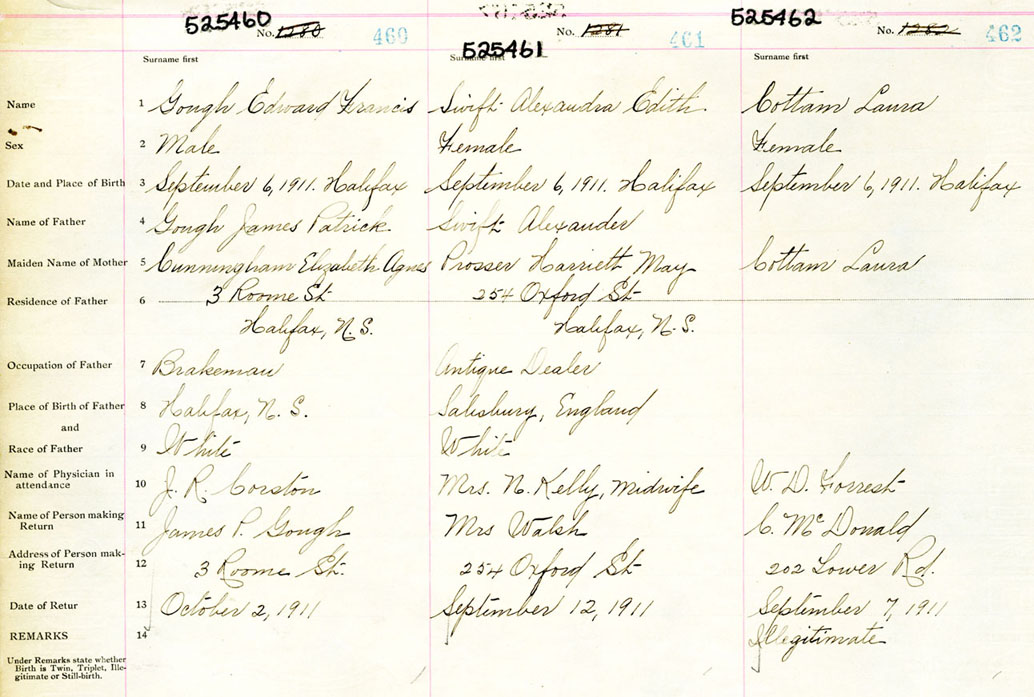 525460 No. 1280 460
525461 No. 1281 461
525462 No. 1282 462
Surname first Surname first Surname first
Name 1 Gough Edward Francis Swift Alexandra Edith Cottam Laura
Sex 2 Male Female Female
Date and Place of Birth 3 September 6, 1911. Halifax September 6, 1911. Halifax September 6, 1911. Halifax
Name of Father 4 Gough James Patrick Swift Alexander
Maiden Name of Mother 5 Cunningham Elizabeth Agnes Prosser Harriett May Cottam Laura
Residence of Father 6 3 Roome St 254 Oxford St
Halifax, N.S. Halifax, N.S.
Occupation of Father 7 Brakeman Antique Dealer
Place of Birth of Father 8 Halifax, N.S. Salisbury, England
and
Race of Father 9 White White
Name of Physician in attendance 10 J. R. Corston Mrs. N. Kelly, Midwife W. D. Forrest
Name of Person making Return 11 James P. Gough Mrs Walsh C. McDonald
Address of Person mak-
ing Return 12 3 Roome St. 254 Oxford St 202 Lower Rd.
Date of Retur 13 October 2, 1911 September 12, 1911 September 7, 1911
REMARKS 14 Illegitimate
Under Remarks state whether
Birth is Twin, Triplet, Ille-
gitimate or Still-birth.